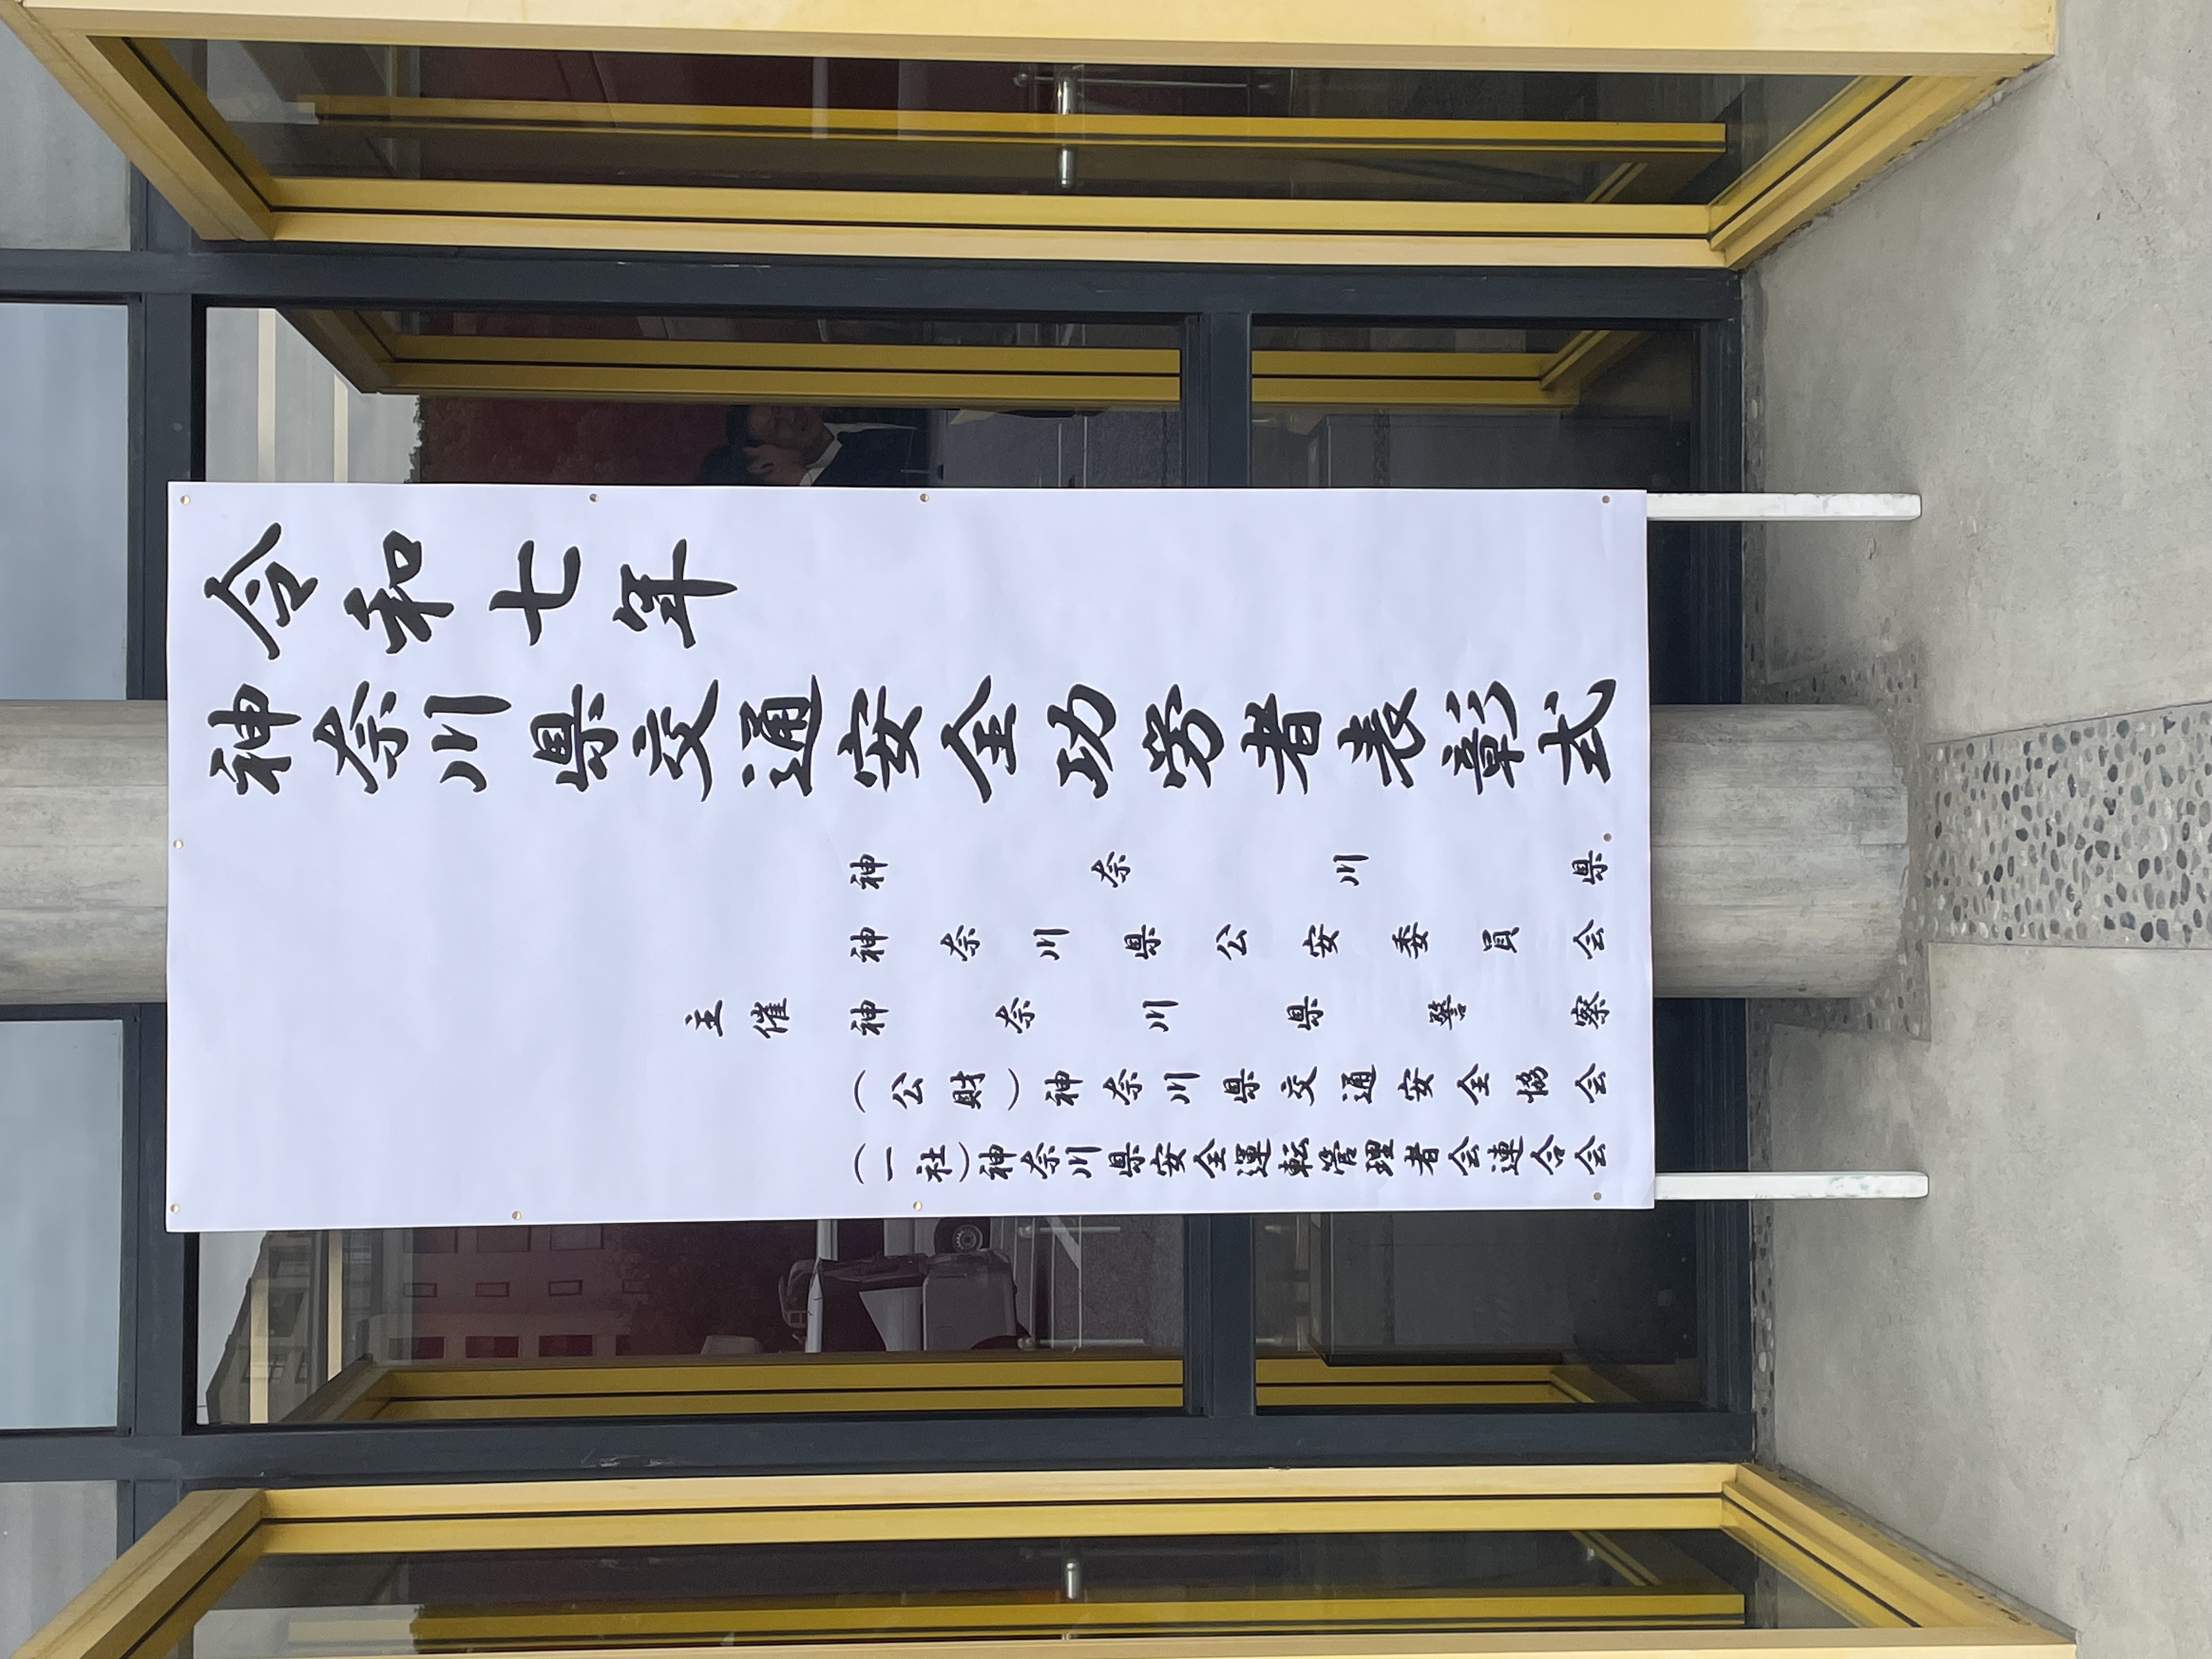 令和七年
神奈川県交通安全功労者表彰式
神奈川県
神奈川県公安委員会
主催 神奈川県警察
（公財）神奈川県交通安全協会
（一社）神奈川県安全運転管理者会連合会